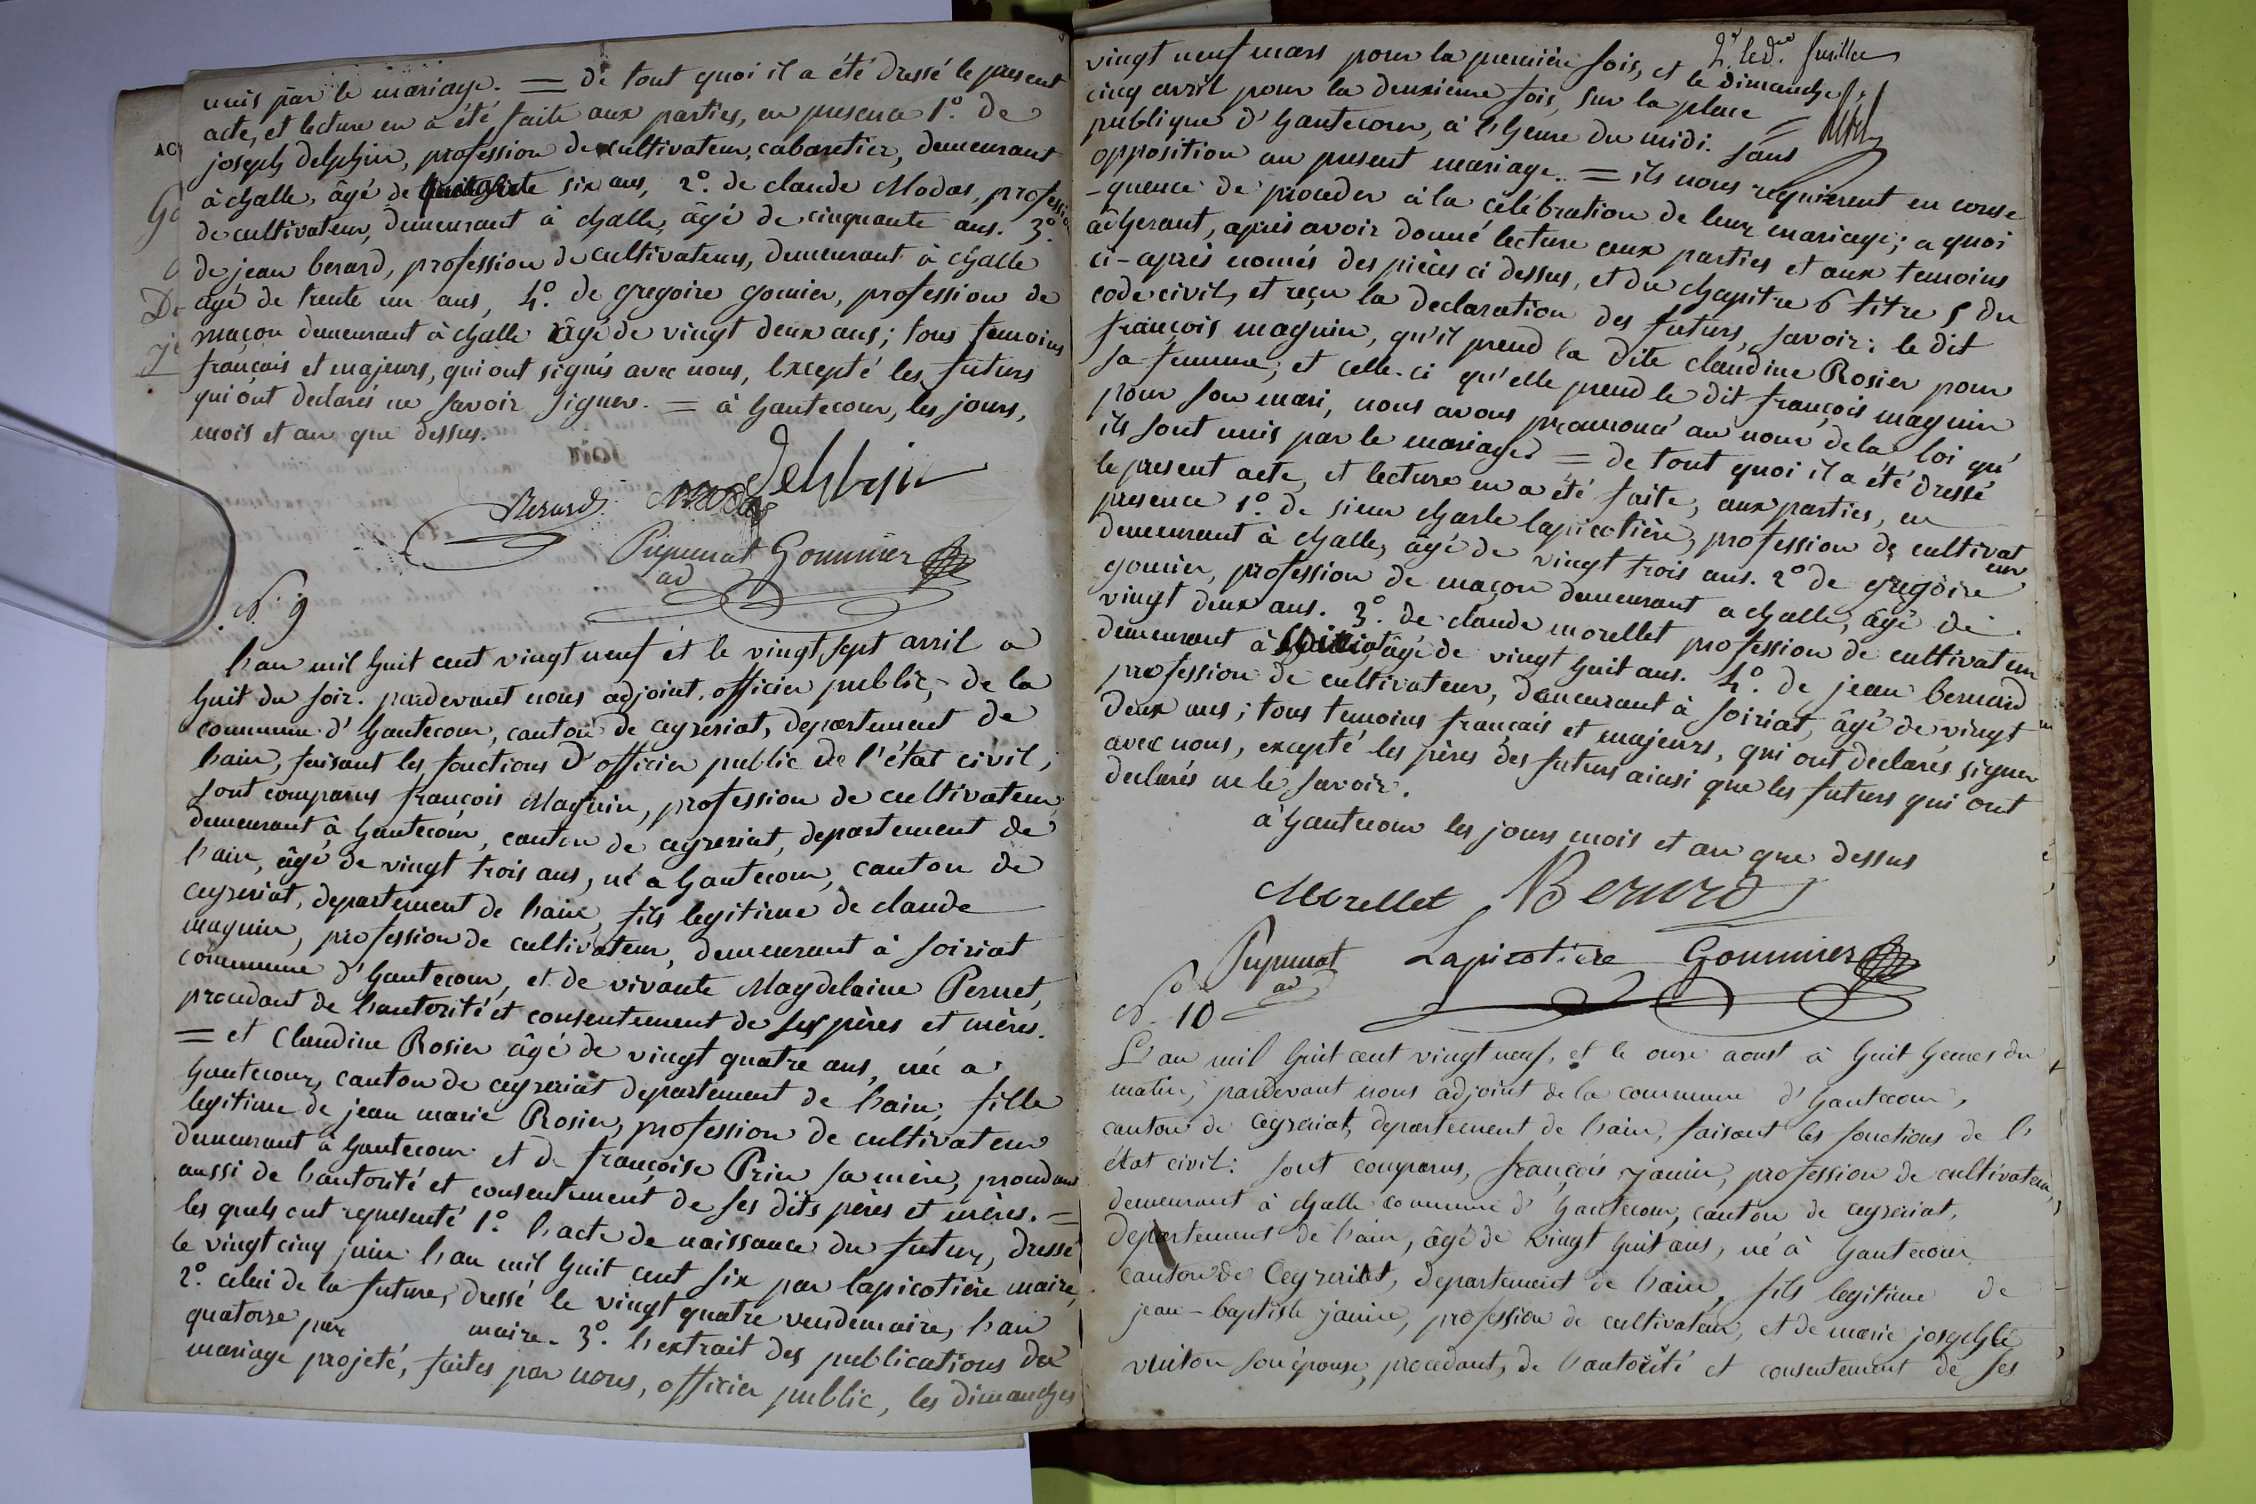 unis par le mariage. = de tout quoi il a été dressé le present
acte, et lecture en a été faite aux parties, en presence 1.° de
joseph delphin, profession de cultivateur, cabaretier, demeurant
à challe, âgé de six ans, 2.° de claude Modas, profession
de cultivateur, demeurant à challe, âgé de cinquante ans. 3.°
de jean berard, profession de cultivateurs, demeurant à challe
âgé de trente un ans, 4.° de gregoire gomier, profession de
maçon demeurant à challe âgé de vingt deux ans; tous temoins
français et majeurs, qui ont signés avec nous, Excepté les futurs
qui ont declarés ne savoir signer. = à hautecour, les jours,
mois et an que dessus.
Delphin
Berard Modas
Gommier
ad
N.° 9
L'an mil huit cent vingt neuf et le vingt sept avril a
huit du soir. pardevant nous adjoint, officier public, de la
commune d'hautecour, canton de ceyzeriat, departement de
l'ain, faisant les fonctions d'officier public de l'état civil;
sont comparus françois Magnin, profession de cultivateur,
demeurant à hautecour, canton de ceyzeriat, departement de
l'ain, âgé de vingt trois ans, né a hautecour, canton de
ceyzeriat, departement de l'ain, fils legitime de claude
magnin, profession de cultivateur, demeurant à soiriat
commune d'hautecour, et de vivante Magdelaine Pernet,
procedant de l'autorité et consentement de ses pères et mères.
= et Claudine Rosier âgé de vingt quatre ans, née a
hautecour, canton de ceyzeriat departement de l'ain, fille
legitime de jean marie Rosier, profession de cultivateur
demeurant à hautecour et de françoise Prin sa mère, procedant
aussi de l'autorité et consentement de ses dits pères et mères. =
les quels ont representé 1.° l'acte de naissance du futur, dressé
le vingt cinq juin l'an mil huit cent six par lapicotière maire,
2.° celui de la future, dressé le vingt quatre vendemaire, l'an
quatorze par maire. 3.° l'extrait des publications du
mariage projeté, faites par nous, officier public, les dimanches
vingt neuf mars pour la première fois, et le dimanche
cinq avril pour la deuxieme fois, sur la place
publique d'hautecour, à l'heure du midi. sans
opposition au present mariage. = ils nous requièrent en conse
-quence de proceder à la célébration de leur mariage; a quoi
adherant, après avoir donné lecture aux parties et aux temoins
ci-après només des pièces ci dessus, et du chapitre 6 titre 5 du
code civil, et reçu la declaration des futurs, savoir: le dit
françois magnin, qu'il prend la dite claudine Rosier pour
sa femme; et celle-ci qu'elle prend le dit françois magnin
pour son mari, nous avons prononcé au nom de la loi qu'
ils sont unis par le mariage = de tout quoi il a été dressé
le present acte, et lecture en a été faite, aux parties, en
presence 1.° de sieur charle lapicotière, profession de cultivateur
demeurant à challe, âgé de vingt trois ans. 2.° de gregoire
gomier, profession de maçon demeurant a challe, âgé de
vingt deux ans. 3.° de claude morellet profession de cultivateur
demeurant à âgé de vingt huit ans. 4.° de jean bernard
profession de cultivateur, demeurant à soiriat, âgé de vingt
deux ans; tous temoins français et majeurs, qui ont declarés signer
avec nous, excepté les pères des futurs ainsi que les futurs qui ont
declarés ne le savoir.
à hautecour les jours mois et an que dessus
Morellet Berard
Lapicotière Gommier
ad
N.° 10
L'an mil huit cent vingt neuf, et le onze aoust à huit heures du
matin, pardevant nous adjoint de la commune d'hautecour,
canton de ceyzeriat, departement de l'ain, faisant les fonctions de l'
état civil: sont comparus, françois janin, profession de cultivateur,
demeurant à challe commune d'hautecour, canton de ceyzeriat,
departement de l'ain, âgé de vingt huit ans, né à hautecour
canton de Ceyzeriat, departement de l'ain, fils legitime de
jean-baptiste janin, profession de cultivateur, et de marie josephte
vuiton son épouse, procedant, de l'autorité et consentement de ses